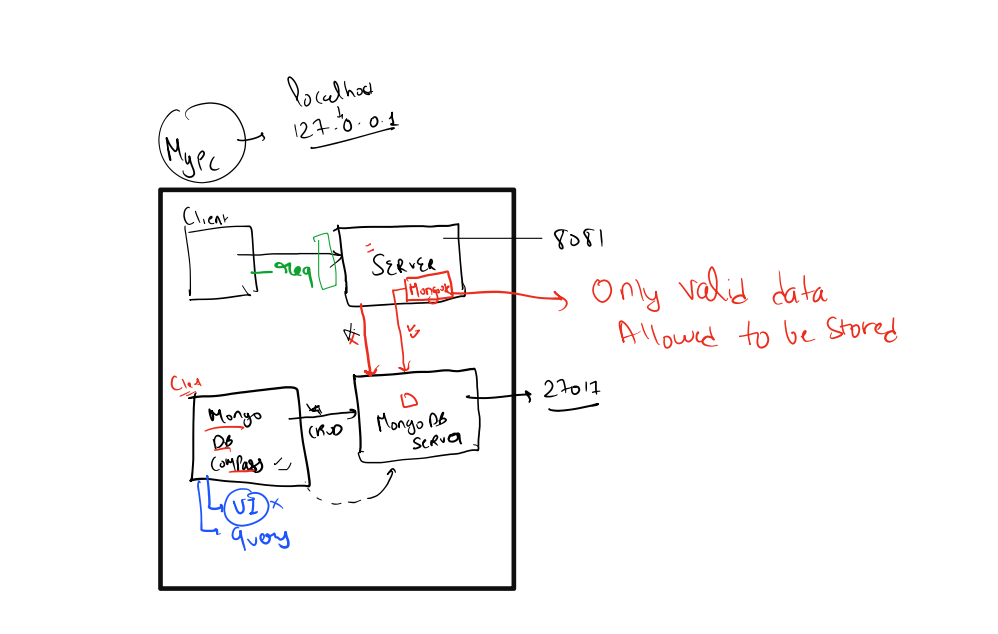 localhost
127.0.0.1
MyPC
Client
req
SERVER
8081
Only valid data
Allowed to be stored
27017
Mongo
DB
Compass
CRUD
Mongo DB
Server
UI
query